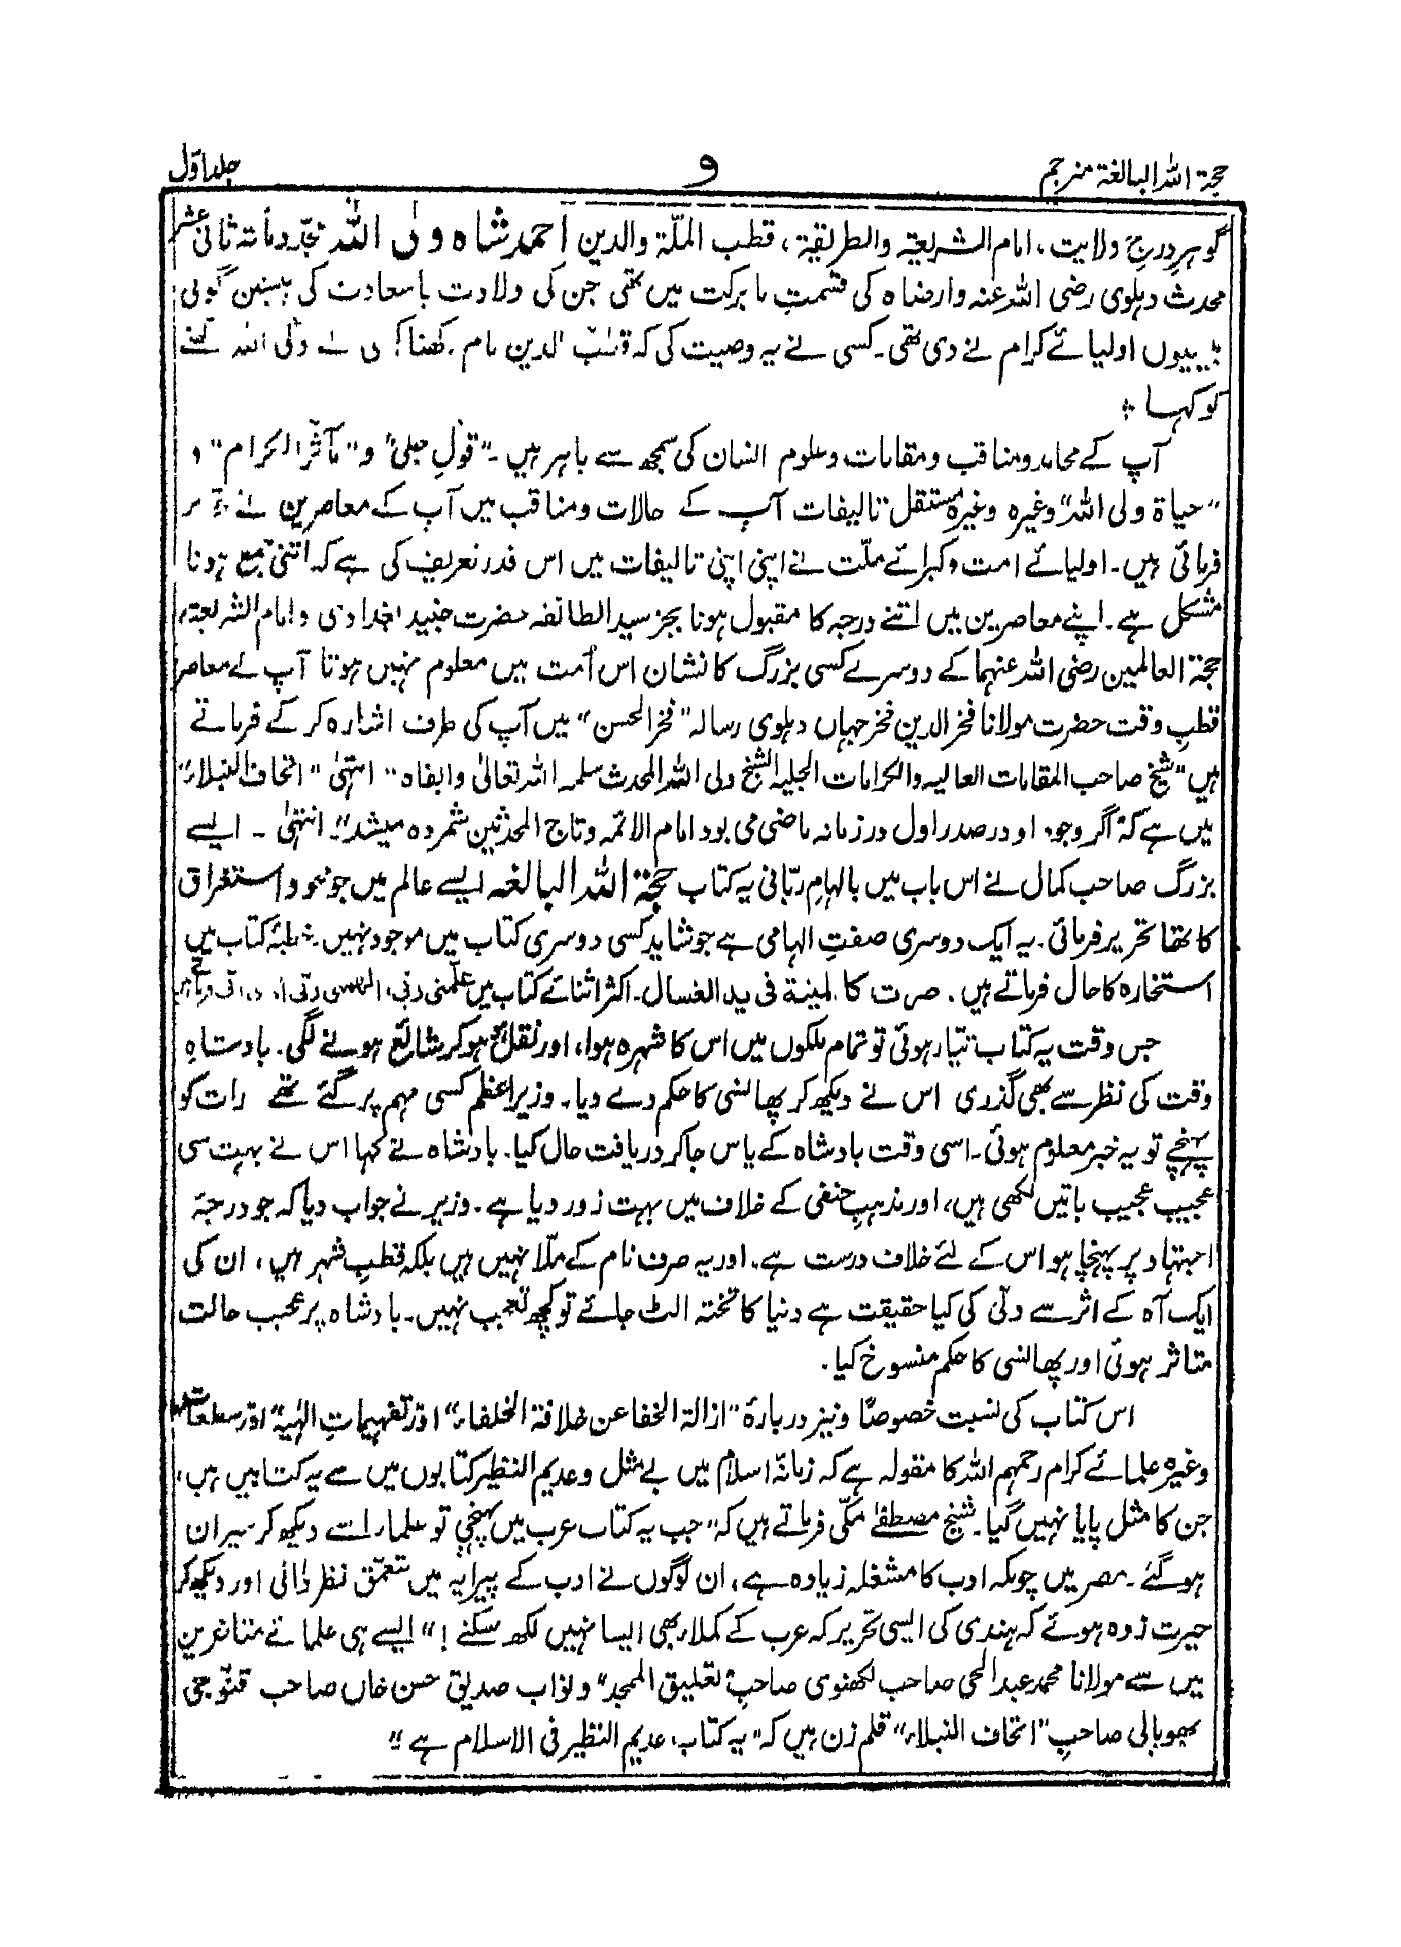 حجۃ اللہ البالغۃ مترجم
و
جلد اوّل
گوہرِ درجِ ولایت، امام الشریعۃ والطریقۃ، قطب الملّۃ والدین احمد شاہ ولی اللہ مجدّد مأتہ ثانی عشر
محدث دہلوی رضی اللہ عنہ وارضاہ کی قسمتِ بابرکت میں تھی جن کی ولادت باسعادت کی پیشین گوئی
بیسیوں اولیائے کرام نے دی تھی۔ کسی نے یہ وصیت کی کہ قطب الدین نام رکھنا۔ کسی نے ولی اللہ
کو کہا ؞
آپ کے محامد ومناقب ومقامات وعلوم انسان کی سمجھ سے باہر ہیں۔ "قولِ جلی" و "مآثر الکرام" و
"حیاۃ ولی اللہ" وغیرہ وغیرہ مستقل تالیفات آپ کے حالات ومناقب میں آپ کے معاصرین نے
فرمائی ہیں۔ اولیائے امت وکبرائے ملّت نے اپنی اپنی تالیفات میں اس قدر تعریف کی ہے کہ اتنی جمع ہونا
مشکل ہے۔ اپنے معاصرین میں اتنے درجہ کا مقبول ہونا بجز سید الطائفہ حضرت جنید بغدادی و امام الشریعۃ،
حجۃ العالمین رضی اللہ عنہما کے دوسرے کسی بزرگ کا نشان اس اُمت میں معلوم نہیں ہوتا آپ کے معاصر
قطبِ وقت حضرت مولانا فخر الدین فخرِ جہاں دہلوی رسالہ "فخر الحسن" میں آپ کی طرف اشارہ کر کے فرماتے
ہیں "شیخ صاحب المقامات العالیہ والکرامات الجلیہ الشیخ ولی اللہ المحدث سلمہ اللہ تعالیٰ وابقاہ" انتہیٰ "اتحاف النبلاء"
میں ہے کہ "اگر وجود او در صدر اول در زمانہ ماضی می بود امام الائمہ وتاج المحدثین شمردہ میشد"۔ انتہیٰ ۔ ایسے
بزرگ صاحب کمال نے اس باب میں بالہامِ ربّانی یہ کتاب حجۃ اللہ البالغہ ایسے عالم میں جو محو و استغراق
کا تھا تحریر فرمائی۔ یہ ایک دوسری صفتِ الہامی ہے جو شاید کسی دوسری کتاب میں موجود نہیں۔ خطبۂ کتاب میں
استخارہ کا حال فرماتے ہیں۔ صرت کالمیتۃ فی ید الغسال۔ اکثر اثنائے کتاب میں علّمنی ربّی، الہمنی ربّی
جس وقت یہ کتاب تیار ہوئی تو تمام ملکوں میں اس کا شہرہ ہوا، اور نقل ہو کر شائع ہونے لگی۔ بادشاہِ
وقت کی نظر سے بھی گذری اس نے دیکھ کر پھانسی کا حکم دے دیا۔ وزیرِ اعظم کسی مہم پر گئے تھے رات کو
پہنچے تو یہ خبر معلوم ہوئی۔ اسی وقت بادشاہ کے پاس جا کر دریافت حال کیا۔ بادشاہ نے کہا اس نے بہت سی
عجیب عجیب باتیں لکھی ہیں، اور مذہبِ حنفی کے خلاف میں بہت زور دیا ہے۔ وزیر نے جواب دیا کہ جو درجۂ
اجتہاد پر پہنچا ہو اس کے لئے خلاف درست ہے۔ اور یہ صرف نام کے ملّا نہیں ہیں بلکہ قطبِ شہر ہیں، ان کی
ایک آہ کے اثر سے دلّی کی کیا حقیقت ہے دنیا کا تختہ الٹ جائے تو کچھ تعجب نہیں۔ بادشاہ پر عجب حالت
متاثر ہوئی اور پھانسی کا حکم منسوخ کیا۔
اس کتاب کی نسبت خصوصًا ونیز دربارۂ "ازالۃ الخفا عن خلافۃ الخلفاء" اور "تفہیماتِ الٰہیہ" اور سطعات
وغیرہ علمائے کرام رحمہم اللہ کا مقولہ ہے کہ زمانۂ اسلام میں بے مثل وعدیم النظیر کتابوں میں سے یہ کتابیں ہیں،
جن کا مثل پایا نہیں گیا۔ شیخ مصطفےٰ مکّی فرماتے ہیں کہ "جب یہ کتاب عرب میں پہنچی تو علماء اسے دیکھ کر حیران
ہو گئے۔ مصر میں چونکہ ادب کا مشغلہ زیادہ ہے، ان لوگوں نے ادب کے پیرایہ میں تعمّق نظر ڈالی اور دیکھ کر
حیرت زدہ ہوئے کہ ہندی کی ایسی تحریر کہ عرب کے کملاء بھی ایسا نہیں لکھ سکتے!" ایسے ہی علمائے متاخرین
میں سے مولانا محمد عبد الحی صاحب لکھنوی صاحبِ "تعلیق الممجد" ونواب صدیق حسن خاں صاحب قنّوجی
بھوپالی صاحبِ "اتحاف النبلاء" قلم زن ہیں کہ "یہ کتاب عدیم النظیر فی الاسلام ہے"